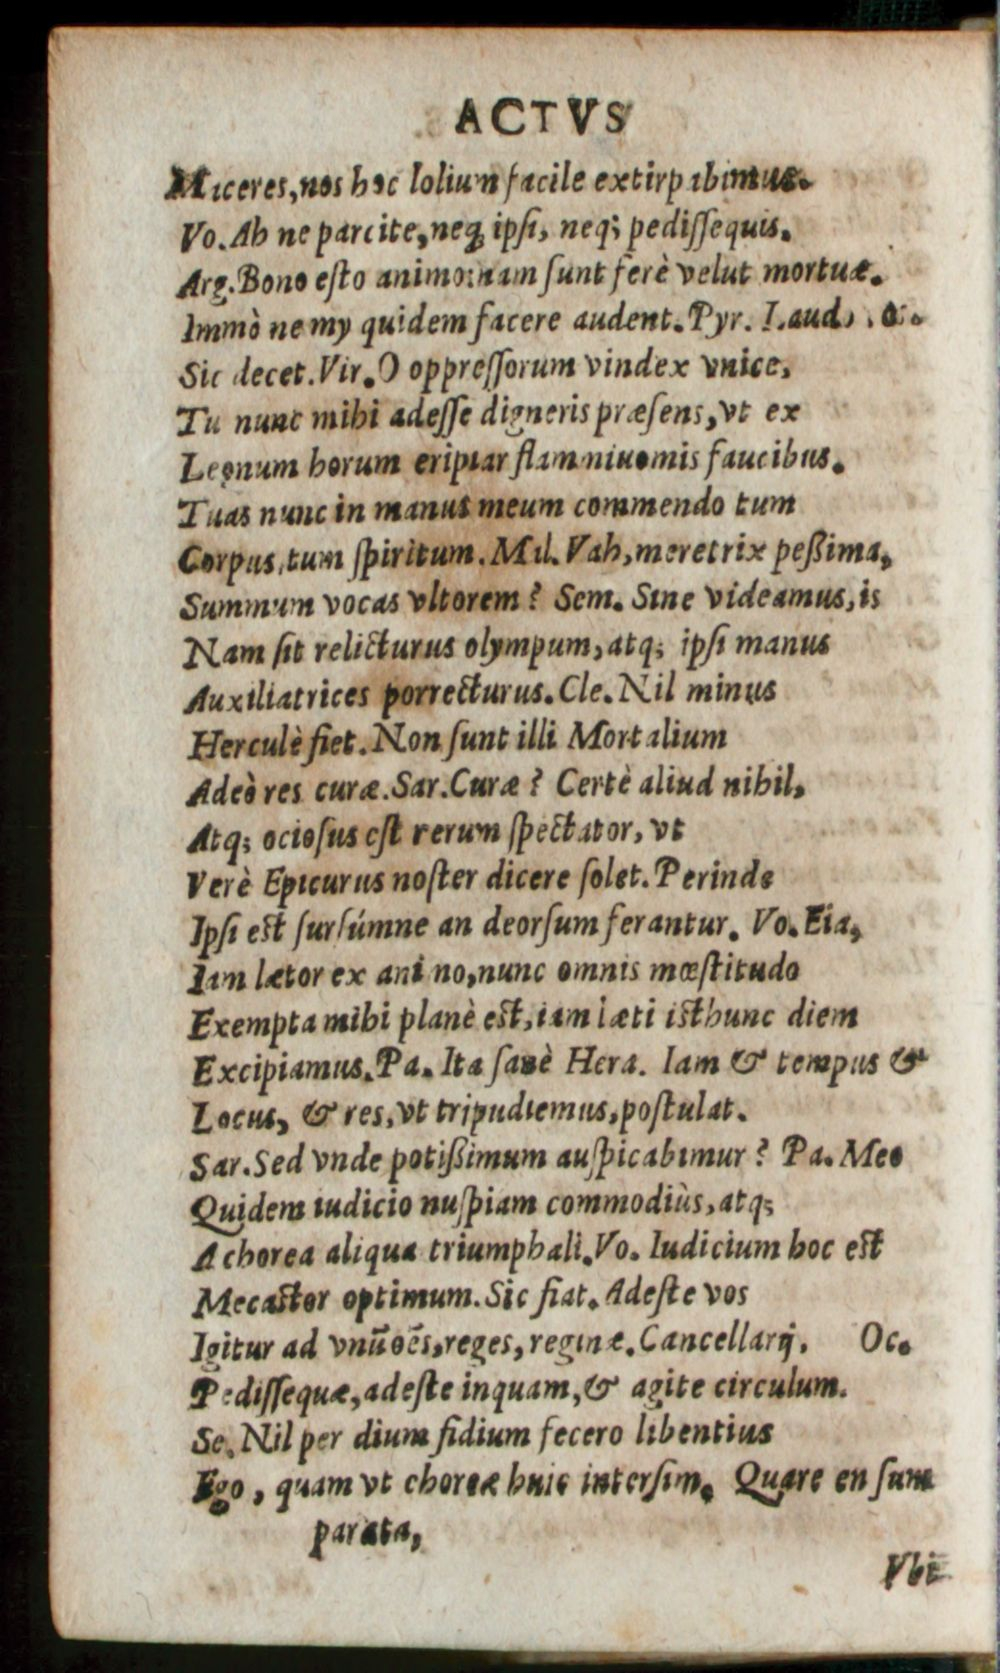 ACTVS
Maceres, nos hoc lolium facile extirpabimus.
Vo. Ah ne parcite, neq; ipſi, neq; pediſſequis.
Arg. Bono eſto animo: nam ſunt ferè velut mortuæ.
Immò ne my quidem facere audent. Pyr. Laudo.
Sic decet. Vir. O oppreſſorum vindex vnice,
Tu nunc mihi adeſſe digneris præſens, vt ex
Leonum horum eripiar flamniuomis faucibus.
Tuas nunc in manus meum commendo tum
Corpus, tum ſpiritum. Mil. Vah, meretrix peßima,
Summum vocas vltorem? Sem. Sine videamus, is
Nam ſit relicturus olympum, atq; ipſi manus
Auxiliatrices porrecturus. Cle. Nil minus
Herculè fiet. Non ſunt illi Mortalium
Adeò res curæ. Sar. Curæ? Certè aliud nihil,
Atq; ocioſus eſt rerum ſpectator, vt
Verè Epicurus noſter dicere ſolet. Perinde
Ipſi est ſurſúmne an deorſum ferantur. Vo. Eia,
Iam lætor ex animo, nunc omnis mœſtitudo
Exempta mihi planè est, iam læti isthunc diem
Excipiamus. Pa. Ita ſanè Hera. Iam & tempus &
Locus, & res, vt tripudiemus, poſtulat.
Sar. Sed vnde potißimum auſpicabimur? Pa. Meo
Quidem iudicio nuſpiam commodiùs, atq;
A chorea aliqua triumphali. Vo. Iudicium hoc est
Mecastor optimum. Sic fiat. Adeſte vos
Igitur ad vnũ oẽs, reges, reginæ. Cancellarij. Oc.
Pediſſequæ, adeſte inquam, & agite circulum.
Se. Nil per dium fidium fecero libentius
Ego, quam vt choreæ huic interſim. Quare en ſum
parata,
Vbi